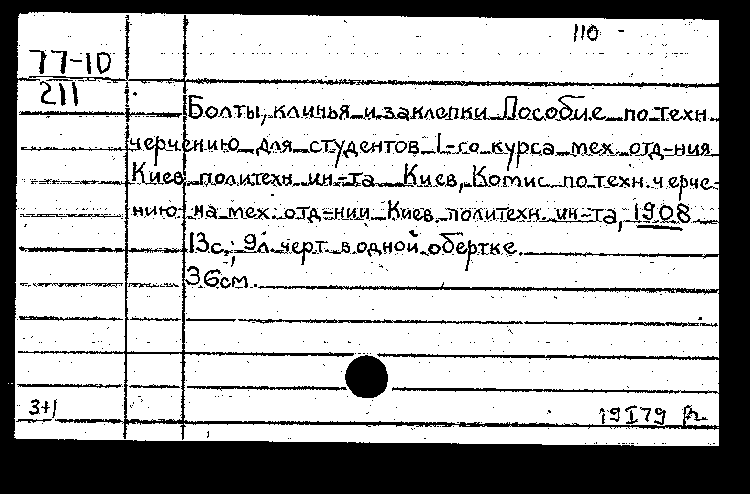 110 -
77-10
211
Болты, клинья и заклепки Пособие по техн.
черчению для студентов I-го курса мех. отд-ния
Киев. политехн. ин-та Киев, Комис. по техн. черче-
нию на мех. отд-нии Киев. политехн. ин-та, 1908
13с.; 9л. черт. в одной обертке.
36см.
3+1
19 I 79